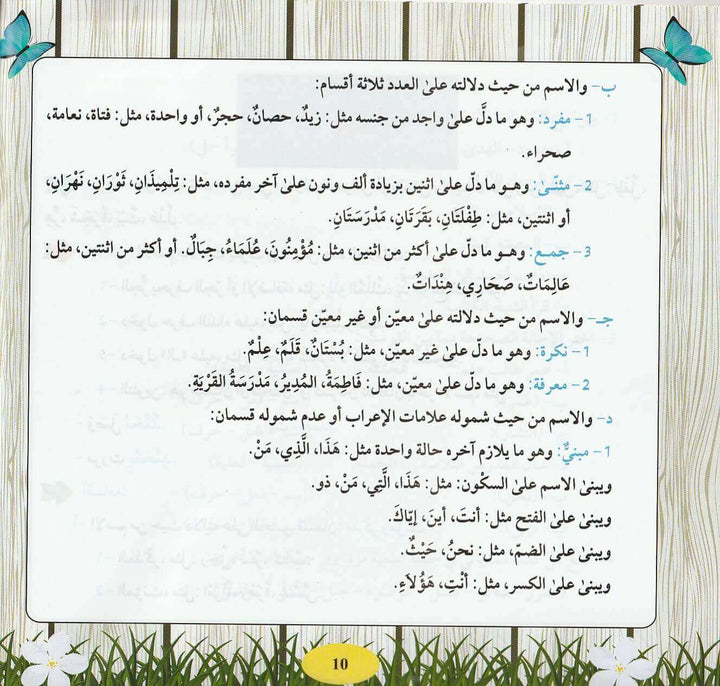 ب- والاسم من حيث دلالته على العدد ثلاثة أقسام:
1- مفرد: وهو ما دلَّ على واجد من جنسه مثل: زيدٌ، حصانٌ، حجرٌ، أو واحدة، مثل: فتاة، نعامة،
صحراء.
2- مثنّىٰ: وهو ما دلّ علىٰ اثنين بزيادة ألف ونون علىٰ آخر مفرده، مثل: تِلْمِيذَانِ، ثَوْرَانِ، نَهْرَانِ،
أو اثنتين، مثل: طِفْلَتَانِ، بَقَرَتَانِ، مَدْرَسَتَانِ.
3- جمع: وهو ما دلّ علىٰ أكثر من اثنين، مثل: مُؤْمِنُونَ، عُلَمَاءُ، جِبَالٌ. أو أكثر من اثنتين، مثل:
عَالِمَاتٌ، صَحَارِي، هِنْدَاتٌ.
جـ- والاسم من حيث دلالته علىٰ معيّن أو غير معيّن قسمان:
1- نكرة: وهو ما دلّ علىٰ غير معيّن، مثل: بُسْتَانٌ، قَلَمٌ، عِلْمٌ.
2- معرفة: وهو ما دلّ علىٰ معيّن، مثل: فَاطِمَةُ، المُدِيرُ، مَدْرَسَةُ القَرْيَةِ.
د- والاسم من حيث شموله علامات الإعراب أو عدم شموله قسمان:
1- مبنيٌّ: وهو ما يلازم آخره حالة واحدة مثل: هَذَا، الَّذِي، مَنْ.
ويبنىٰ الاسم علىٰ السكون: مثل: هَذَا، الَّتِي، مَنْ، ذو.
ويبنىٰ علىٰ الفتح مثل: أنتَ، أينَ، إيّاكَ.
ويبنىٰ علىٰ الضمّ، مثل: نحنُ، حَيْثُ.
ويبنىٰ علىٰ الكسر، مثل: أنْتِ، هَؤُلَاءِ.
10